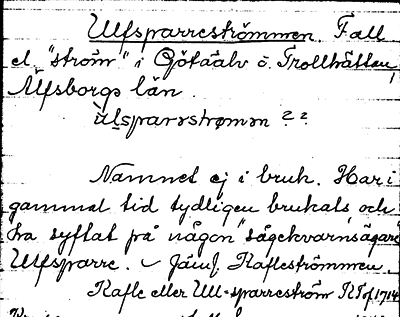 Ulfsparreströmmen. Fall
el. "ström" i Götaälv ö. Trollhättan,
Älfsborgs län.
ùlsparsstrømən
Namnet ej i bruk. Har i
gammal tid tydligen brukats och
ha syftat på någon "sågekvarnsägare"
Ulfsparre. Jämf. Kafleströmmen.
Kafle eller Ull-sparreström 1714